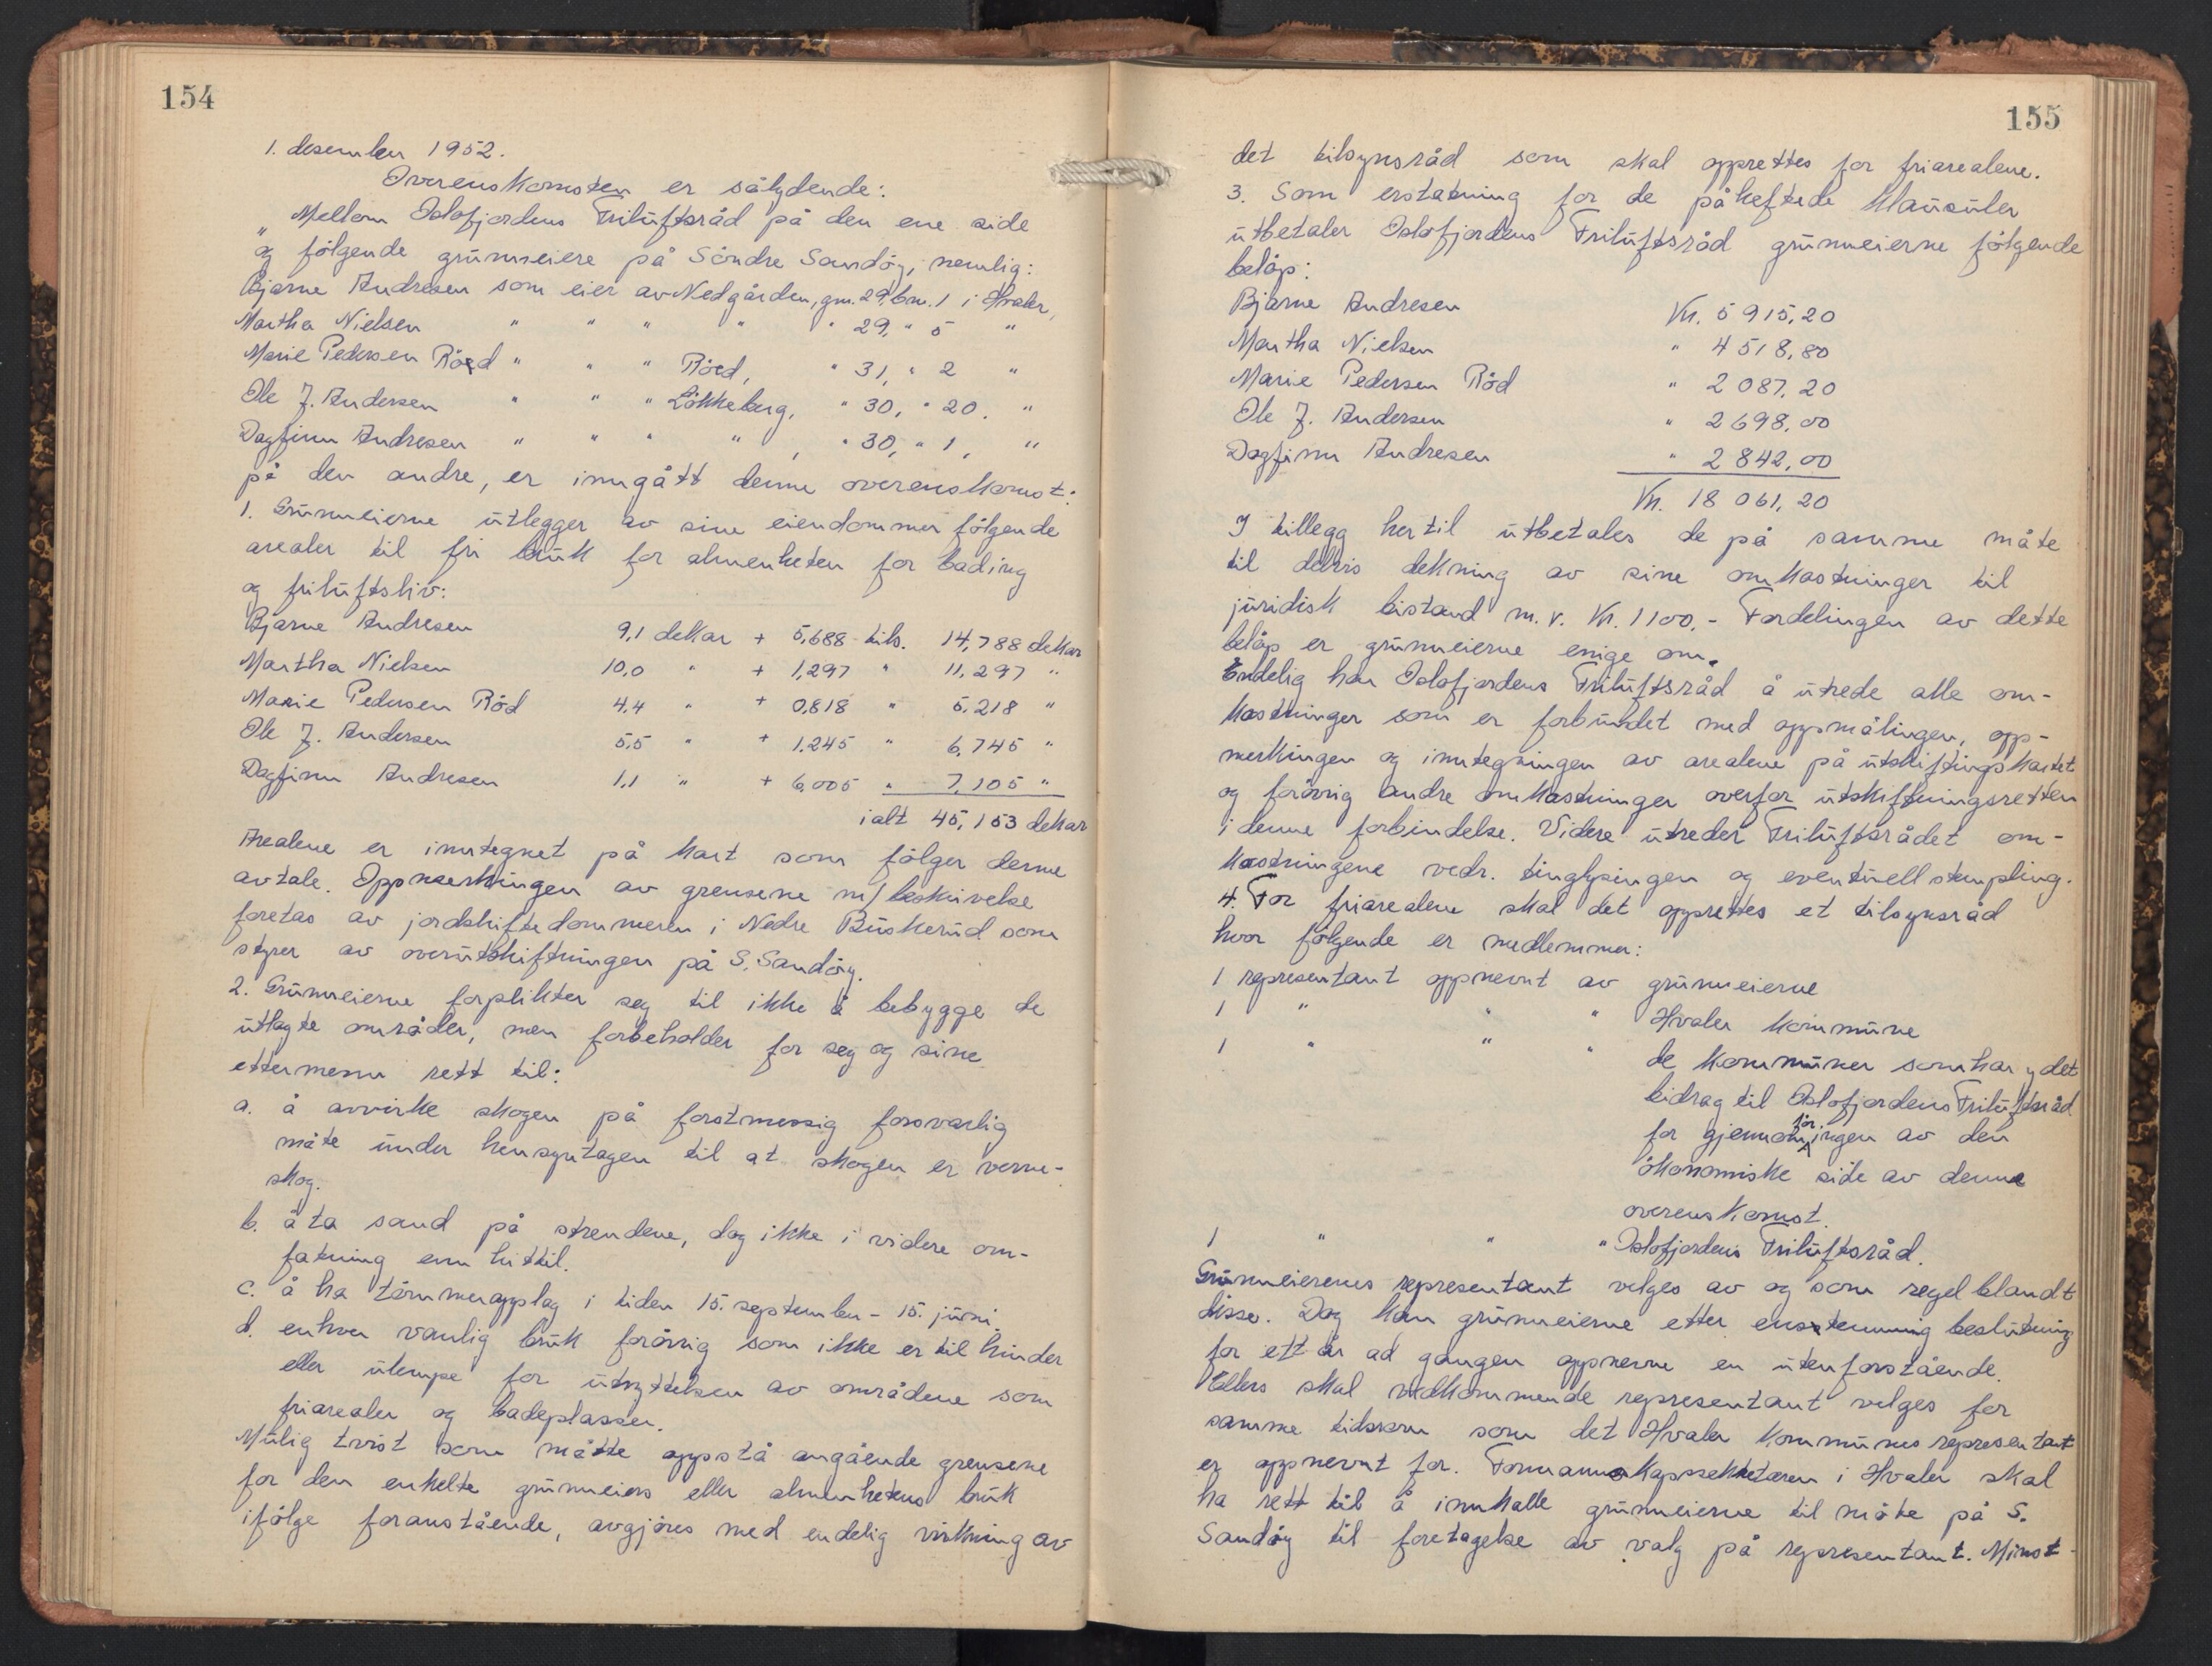 154
1. desember 1952.
Overenskomsten er sålydende:
„Mellom Oslofjordens Friluftsråd på den ene side
og følgende grunneiere på Söndre Sandöy, nemlig:
Bjarne Andresen som eier av Nedgården, gnr. 29, bnr. 1 i Hvaler,
Martha Nielsen " " " " " 29, " 5 "
Marie Pedersen Röed " " " Röed, " 31, " 2 "
Ole J. Andersen " " " Lökkeberg, " 30, " 20. "
Dagfinn Andresen " " " " , " 30, " 1, "
på den andre, er inngått denne overenskomst:
1. Grunneierne utlegger av sine eiendommer fölgende
arealer til fri bruk for almenheten for bading
og friluftsliv:
Bjarne Andresen 9,1 dekar + 5,688 tils. 14,788 dekar
Martha Nielsen 10,0 " + 1,297 " 11,297 "
Marie Pedersen Röd 4,4 " + 0,818 " 5,218 "
Ole J. Andersen 5,5 " + 1,245 " 6,745 "
Dagfinn Andresen 1,1 " + 6,005 " 7,105 "
ialt 45,153 dekar
Arealene er inntegnet på kart som fölger denne
avtale. Oppmerkingen av grensene m/beskrivelse
foretas av jordskiftedommeren i Nedre Buskerud som
styrer av overutskiftningen på S. Sandöy.
2. Grunneierne forplikter seg til ikke å bebygge de
utlagte områder, men forbeholder for seg og sine
ettermenn rett til:
a. å avvirke skogen på forstmessig forsvarlig
måte under hensyntagen til at skogen er verne-
skog.
b. å ta sand på strendene, dog ikke i videre om-
fatning enn hittil.
c. å ha tömmeropplag i tiden 15. september - 15. juni.
d. enhver vanlig bruk forövrig som ikke er til hinder
eller ulempe for utnyttelsen av områdene som
friarealer og badeplasser.
Mulig tvist som måtte oppstå angående grensene
for den enkelte grunneiers eller almenhetens bruk
ifölge foranstående, avgjöres med endelig virkning av
155
det tilsynsråd som skal opprettes for friarealene.
3. Som erstatning for de påheftede klausuler
utbetaler Oslofjordens Friluftsråd grunneierne fölgende
belöp:
Bjarne Andresen Kr. 5 915,20
Martha Nielsen " 4 518,80
Marie Pedersen Röd " 2 087,20
Ole J. Andersen " 2 698,00
Dagfinn Andresen " 2 842,00
Kr. 18 061,20
I tillegg hertil utbetales de på samme måte
til delvis dekning av sine omkostninger til
juridisk bistand m.v. Kr. 1100,- Fordelingen av dette
belöp er grunneierne enige om.
Endelig har Oslofjordens Friluftsråd å utrede alle om-
kostninger som er forbundet med oppmålingen, opp-
merkingen og inntegningen av arealene på utskiftingskartet
og forövrig andre omkostninger overfor utskiftningsretten
i denne forbindelse. Videre utreder Friluftsrådet om-
kostningene vedr. tinglysingen og eventuell stempling.
4. For friarealene skal det opprettes et tilsynsråd
hvor fölgende er medlemmer:
1 representant oppnevnt av grunneierne
1 " " " Hvaler kommune
1 " " " de kommuner som har ydet
bidrag til Oslofjordens Friluftsråd
for gjennomföringen av den
ökonomiske side av denne
overenskomst.
1 " " " Oslofjordens Friluftsråd.
Grunneierenes representant velges av og som regel blandt
disse. Dog kan grunneierne etter enstemmig beslutning
for ett år ad gangen oppnevne en utenforstående.
Ellers skal vedkommende representant velges for
samme tidsrom som det Hvaler kommunes representant
er oppnevnt for. Formannskapssekretæren i Hvaler skal
ha rett til å innkalle grunneierne til möte på S.
Sandöy til foretagelse av valg på representant. Minst